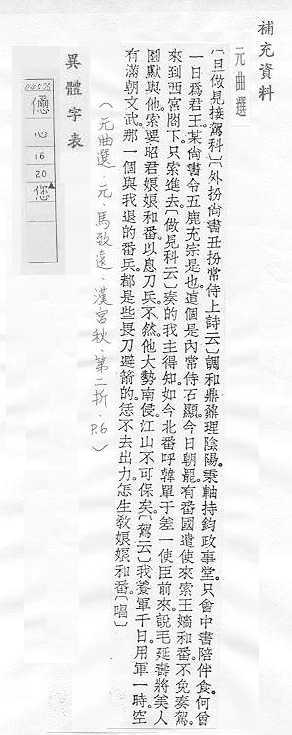 補充資料
元曲選
〔旦做見接駕科〕〔外扮尚書丑扮常侍上詩云〕調和鼎鼐理陰陽。秉軸持鈞政事堂。只會中書陪伴食。何曾
一日為君王。某尚書令五鹿充宗是也。這個是內常侍石顯。今日朝罷。有番國遣使來索王嬙和番。不免奏駕。
來到西宮閣下。只索進去。〔做見科云〕奏的我主得知。如今北番呼韓單于差一使臣前來。說毛延壽將美人
圖獻與他。索要昭君娘娘和番。以息刀兵。不然他大勢南侵。江山不可保矣。〔駕云〕我養軍千日。用軍一時。空
有滿朝文武。那一個與我退的番兵。都是些畏刀避箭的。恁不去出力。怎生教娘娘和番。〔唱〕
（元曲選．元．馬致遠．漢宮秋．第二折．P.6）
異體字表
心
16
20
您